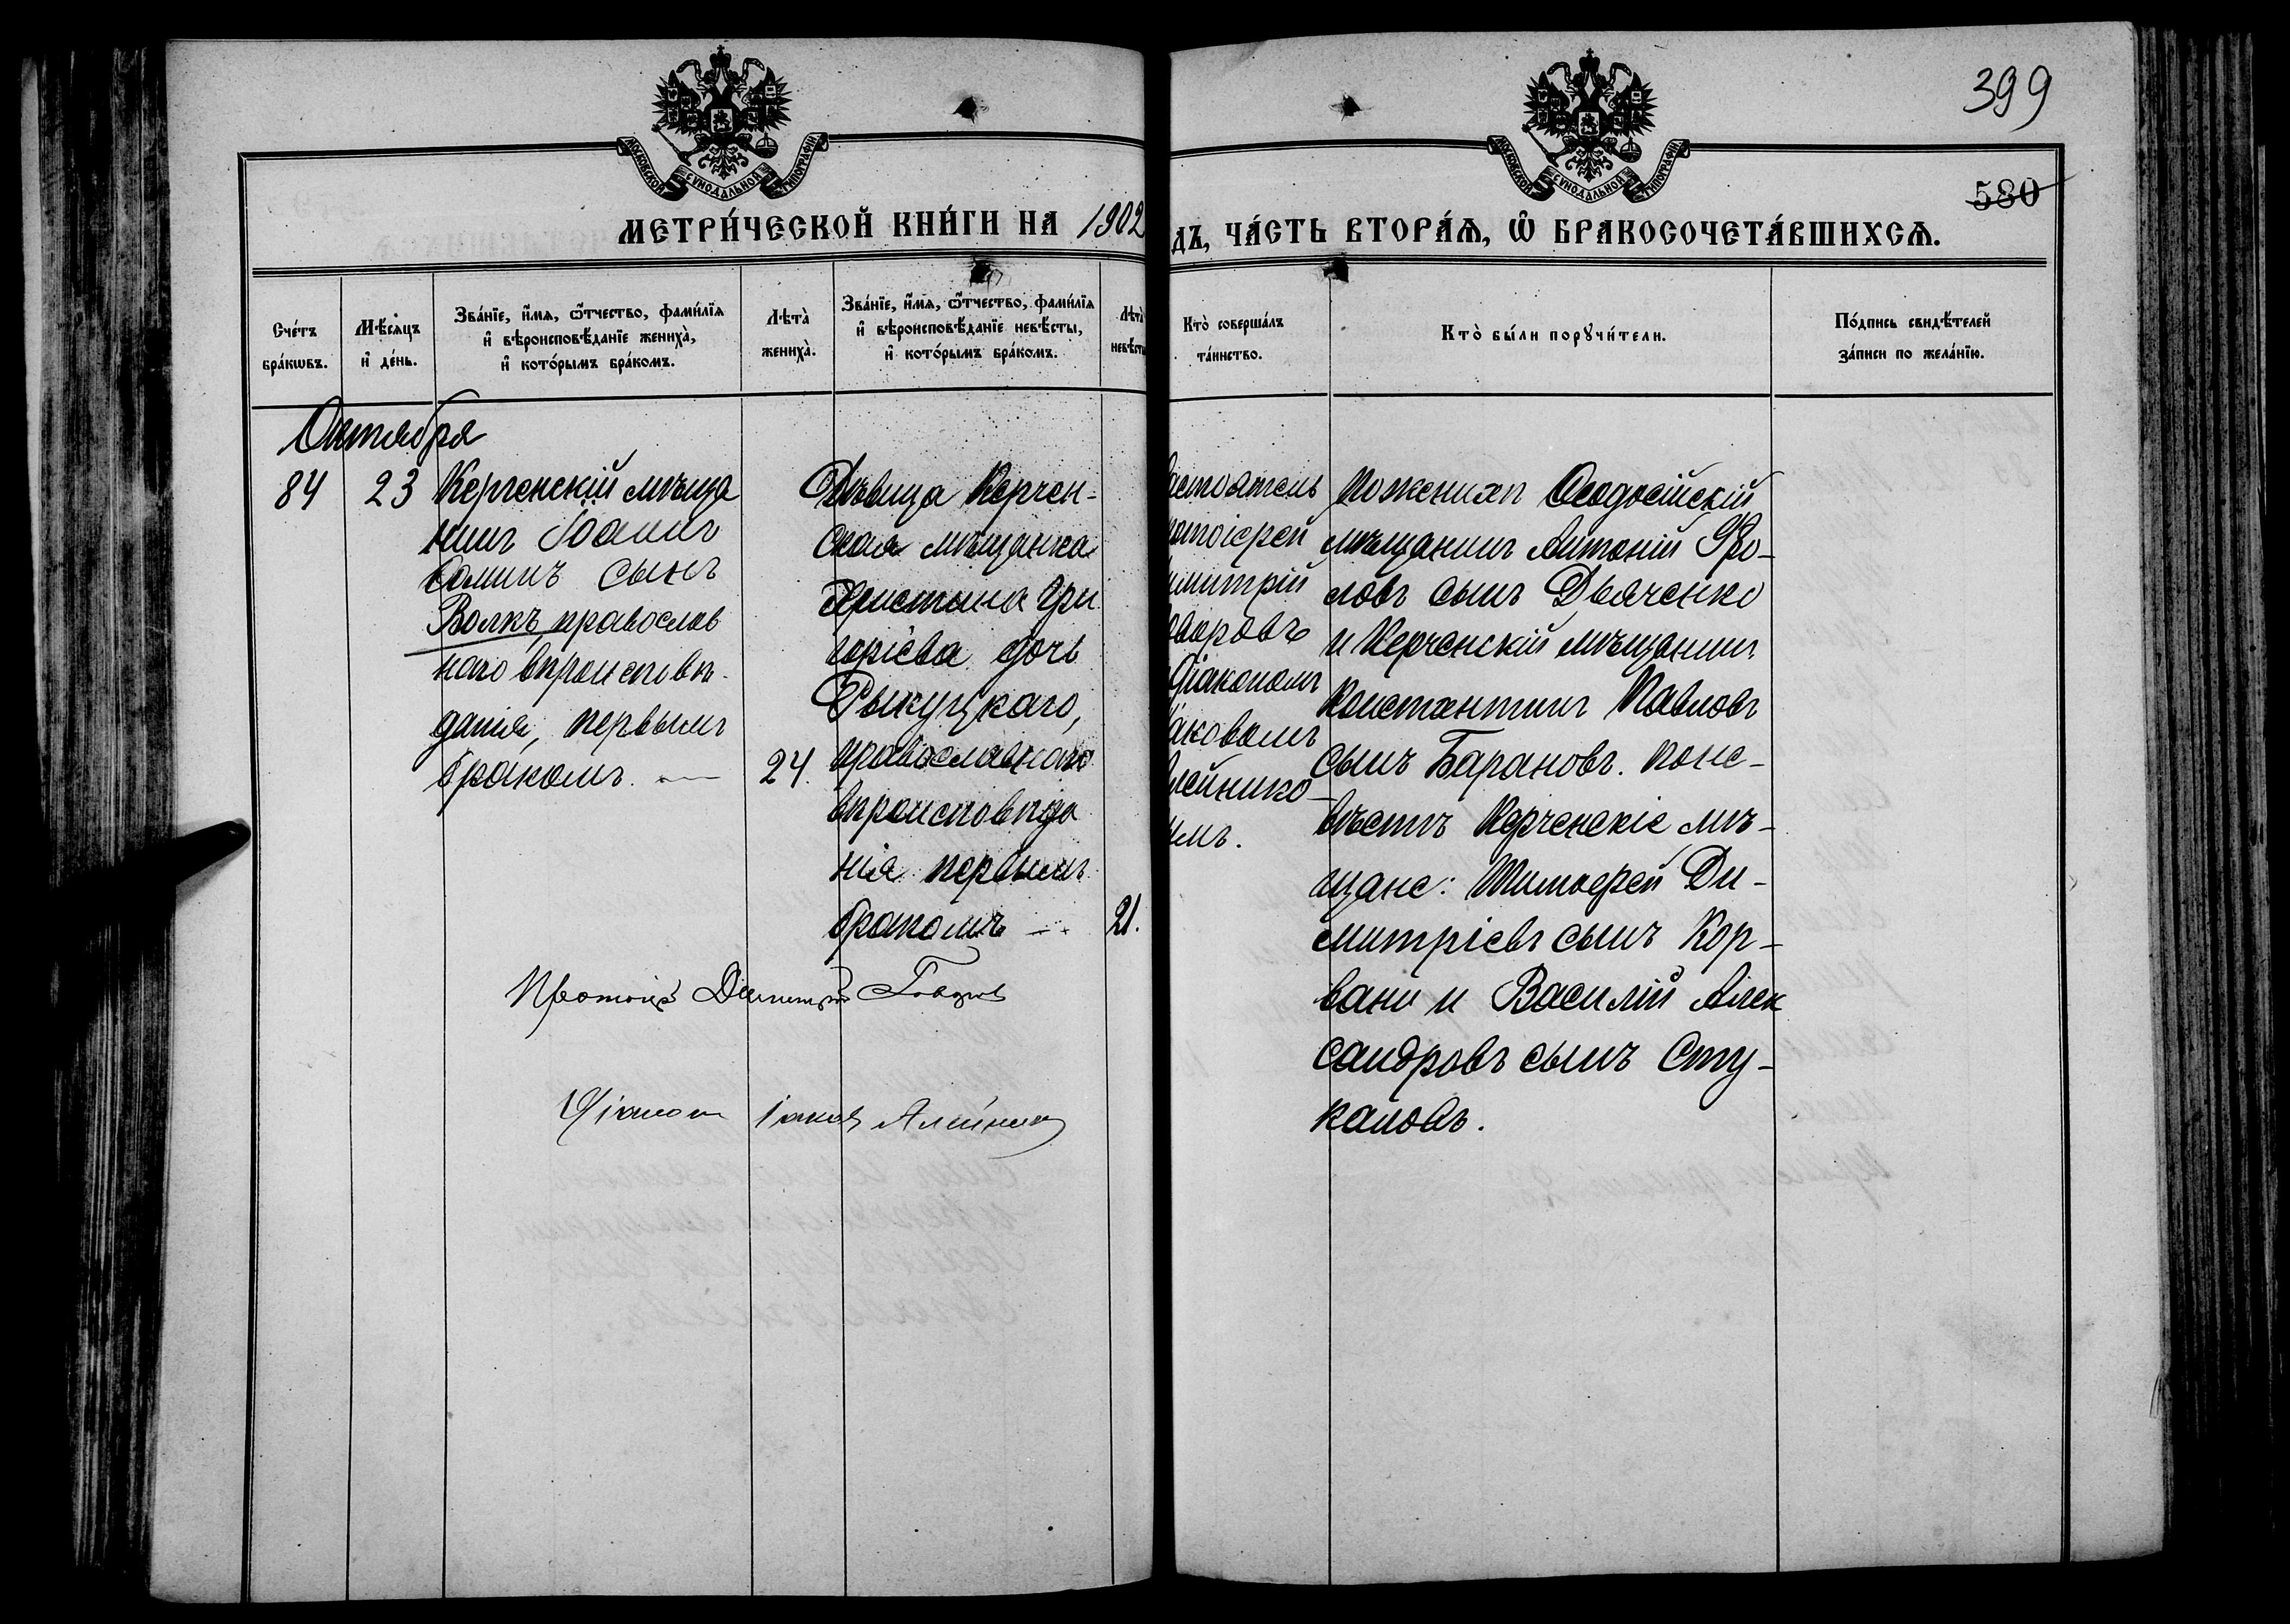 399
580
МОСКОВСКОЙ СѴНОДАЛЬНОЙ ТИПОГРАФІИ
МОСКОВСКОЙ СѴНОДАЛЬНОЙ ТИПОГРАФІИ
МЕТРИ́ЧЕСКОЙ КНИ́ГИ НА 1902
ДЪ, ЧА́СТЬ ВТОРА́Ѧ, Ѽ БРАКОСОЧЕТА́ВШИХСѦ.
Сче́тъ
бра́кѡвъ.
Мѣ́сѧцъ
и҆ де́нь.
Зва́нїе, и҆́мѧ, ѻ҆́тчество, фами́лїѧ
и҆ вѣроисповѣ́данїе жениха̀,
и҆ кото́рымъ бра́комъ.
Лѣта̀
жениха̀.
Зва́нїе, и҆́мѧ, ѻ҆́тчество, фами́лїѧ
и҆ вѣроисповѣ́данїе невѣ́сты,
и҆ кото́рымъ бра́комъ.
Лѣта̀
невѣ́сты
Кто̀ соверша́лъ
та́инство.
Кто̀ бы́ли порꙋчи́тели.
По́дпись свидѣ́телей
за́писи по жела́нїю.
Октября
84
23
Керченскій мѣща
нинъ Іоаннъ
сынъ
Волкъ, православ
наго вѣроисповѣ-
данія, первымъ
бракомъ. —
24.
Дѣвица Керчен-
ская мѣщанка
Христина Гри
горіева дочь
Рыкуцкаго,
православнаго
вѣроисповѣда
нія первымъ
бракомъ —
21.
астоятель
отоіерей
имитрій
оваровъ
діакономъ
аковомъ
лейнико-
ымъ.
По женихѣ Ѳеодосійскій
мѣщанинъ Антоній Фро-
ловъ сынъ Дьяченко
и Керченскій мѣщанинъ
Константинъ Павловъ
сынъ Барановъ. По не-
вѣстѣ Керченскіе мѣ-
щане: Тимоѳей Ди-
митріевъ сынъ Кор-
вани и Василій Алек
сандровъ сынъ Сту-
каловъ.
Протоіер Димитрій Говоров
Діакон Іаков Алейник